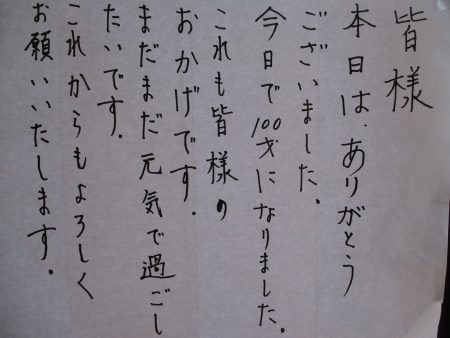 皆様
本日は、ありがとう
ございました。
今日で100才になりました。
これも皆様の
おかげです。
まだまだ元気で過ごし
たいです。
これからもよろしく
お願いいたします。